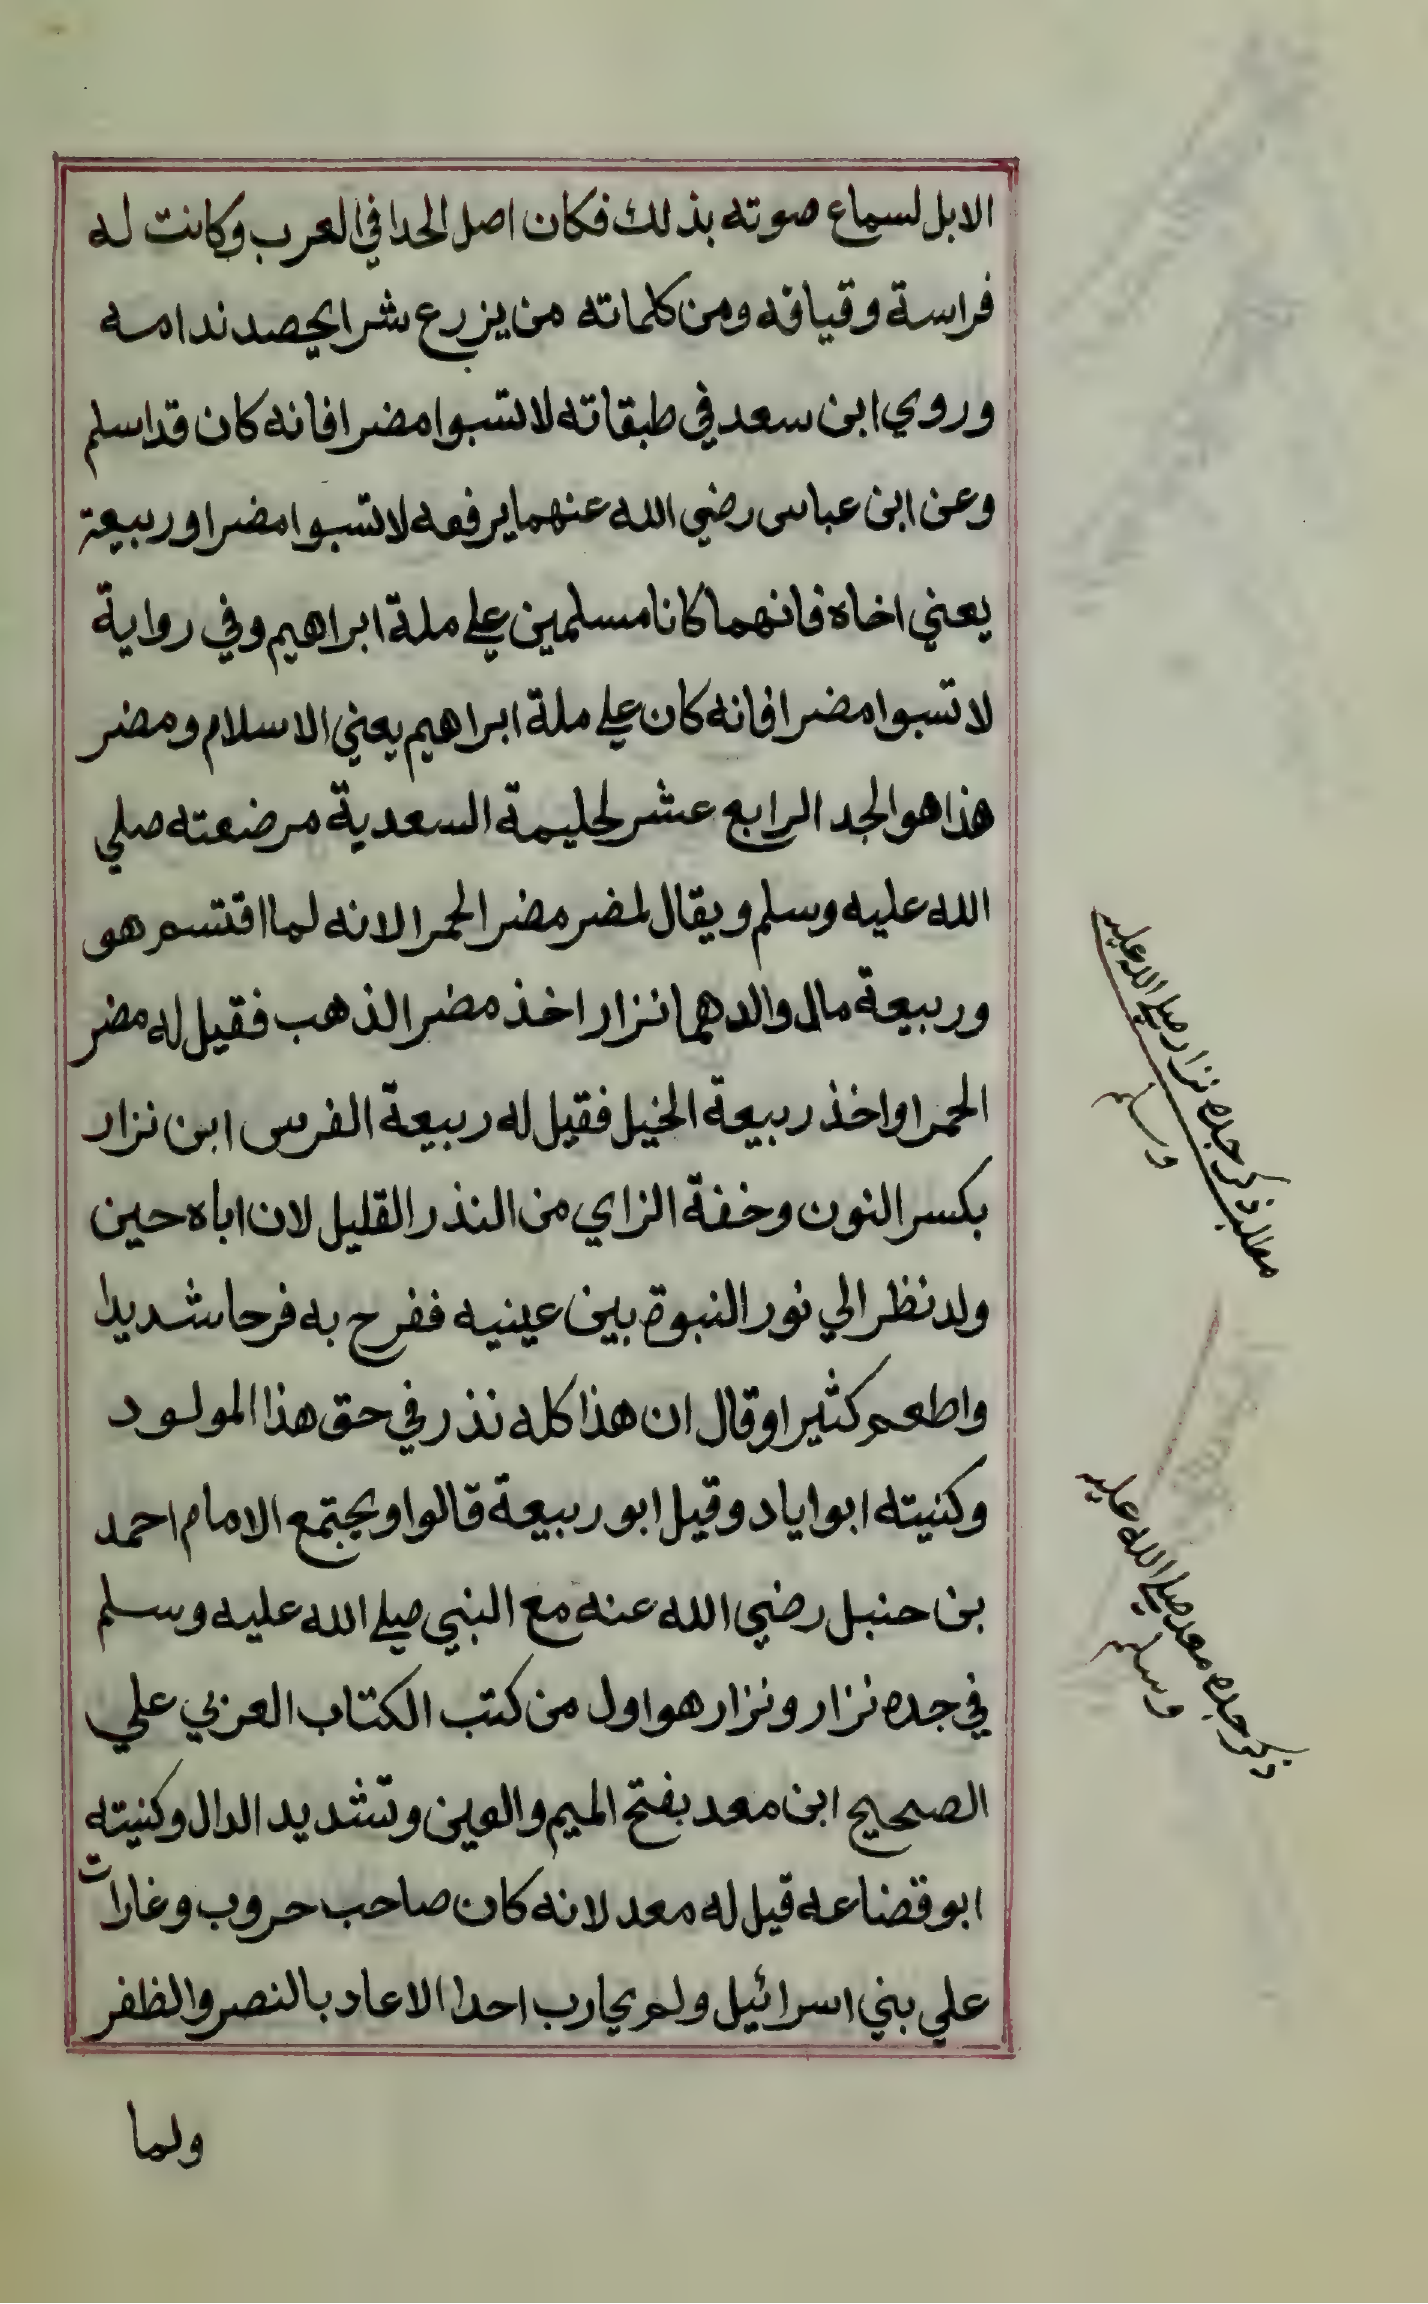 الابل لسماع صوته بذلك فكان اصل الحدا في العرب وكانت له
فراسة وقيافه ومن كلماته من يزرع شرا يحصد ندامه
وروي ابن سعد في طبقاته لا تسبوا مضرا فانه كان قد اسلم
وعن ابن عباس رضي الله عنهما يرفعه لا تسبوا مضرا وربيعة
يعني اخاه فانهما كانا مسلمين علي ملة ابراهيم وفي رواية
لا تسبوا مضرا فانه كان علي ملة ابراهيم يعني الاسلام ومضر
هذا هو الجد الرابع عشر لحليمة السعدية مرضعته صلي
الله عليه وسلم ويقال لمضر مضر الحمرا لانه لما اقتسم هو
وربيعة مال والدهما نزار اخذ مضر الذهب فقيل له مضر
الحمرا واخذ ربيعة الخيل فقيل له ربيعة الفرس ابن نزار
بكسر النون وخفة الزاي من النذر القليل لان اباه حين
ولد نظر الي نور النبوة بين عينيه ففرح به فرحا شديدا
واطعم كثيرا وقال ان هذا كله نذر في حق هذا المولود
وكنيته ابو اياد وقيل ابو ربيعة قالوا ويجتمع الامام احمد
بن حنبل رضي الله عنه مع النبي صلي الله عليه وسلم
في جده نزار ونزار هو اول من كتب الكتاب العربي علي
الصحيح ابن معد بفتح الميم والعين وتشديد الدال وكنيته
ابو قضاعه قيل له معد لانه كان صاحب حروب وغارات
علي بني اسرائيل ولم يحارب احدا الا عاد بالنصر والظفر
ولما
مطلب ذكر جده نزار صلي الله عليه
وسلم
ذكر جده معد صلي الله عليه
وسلم